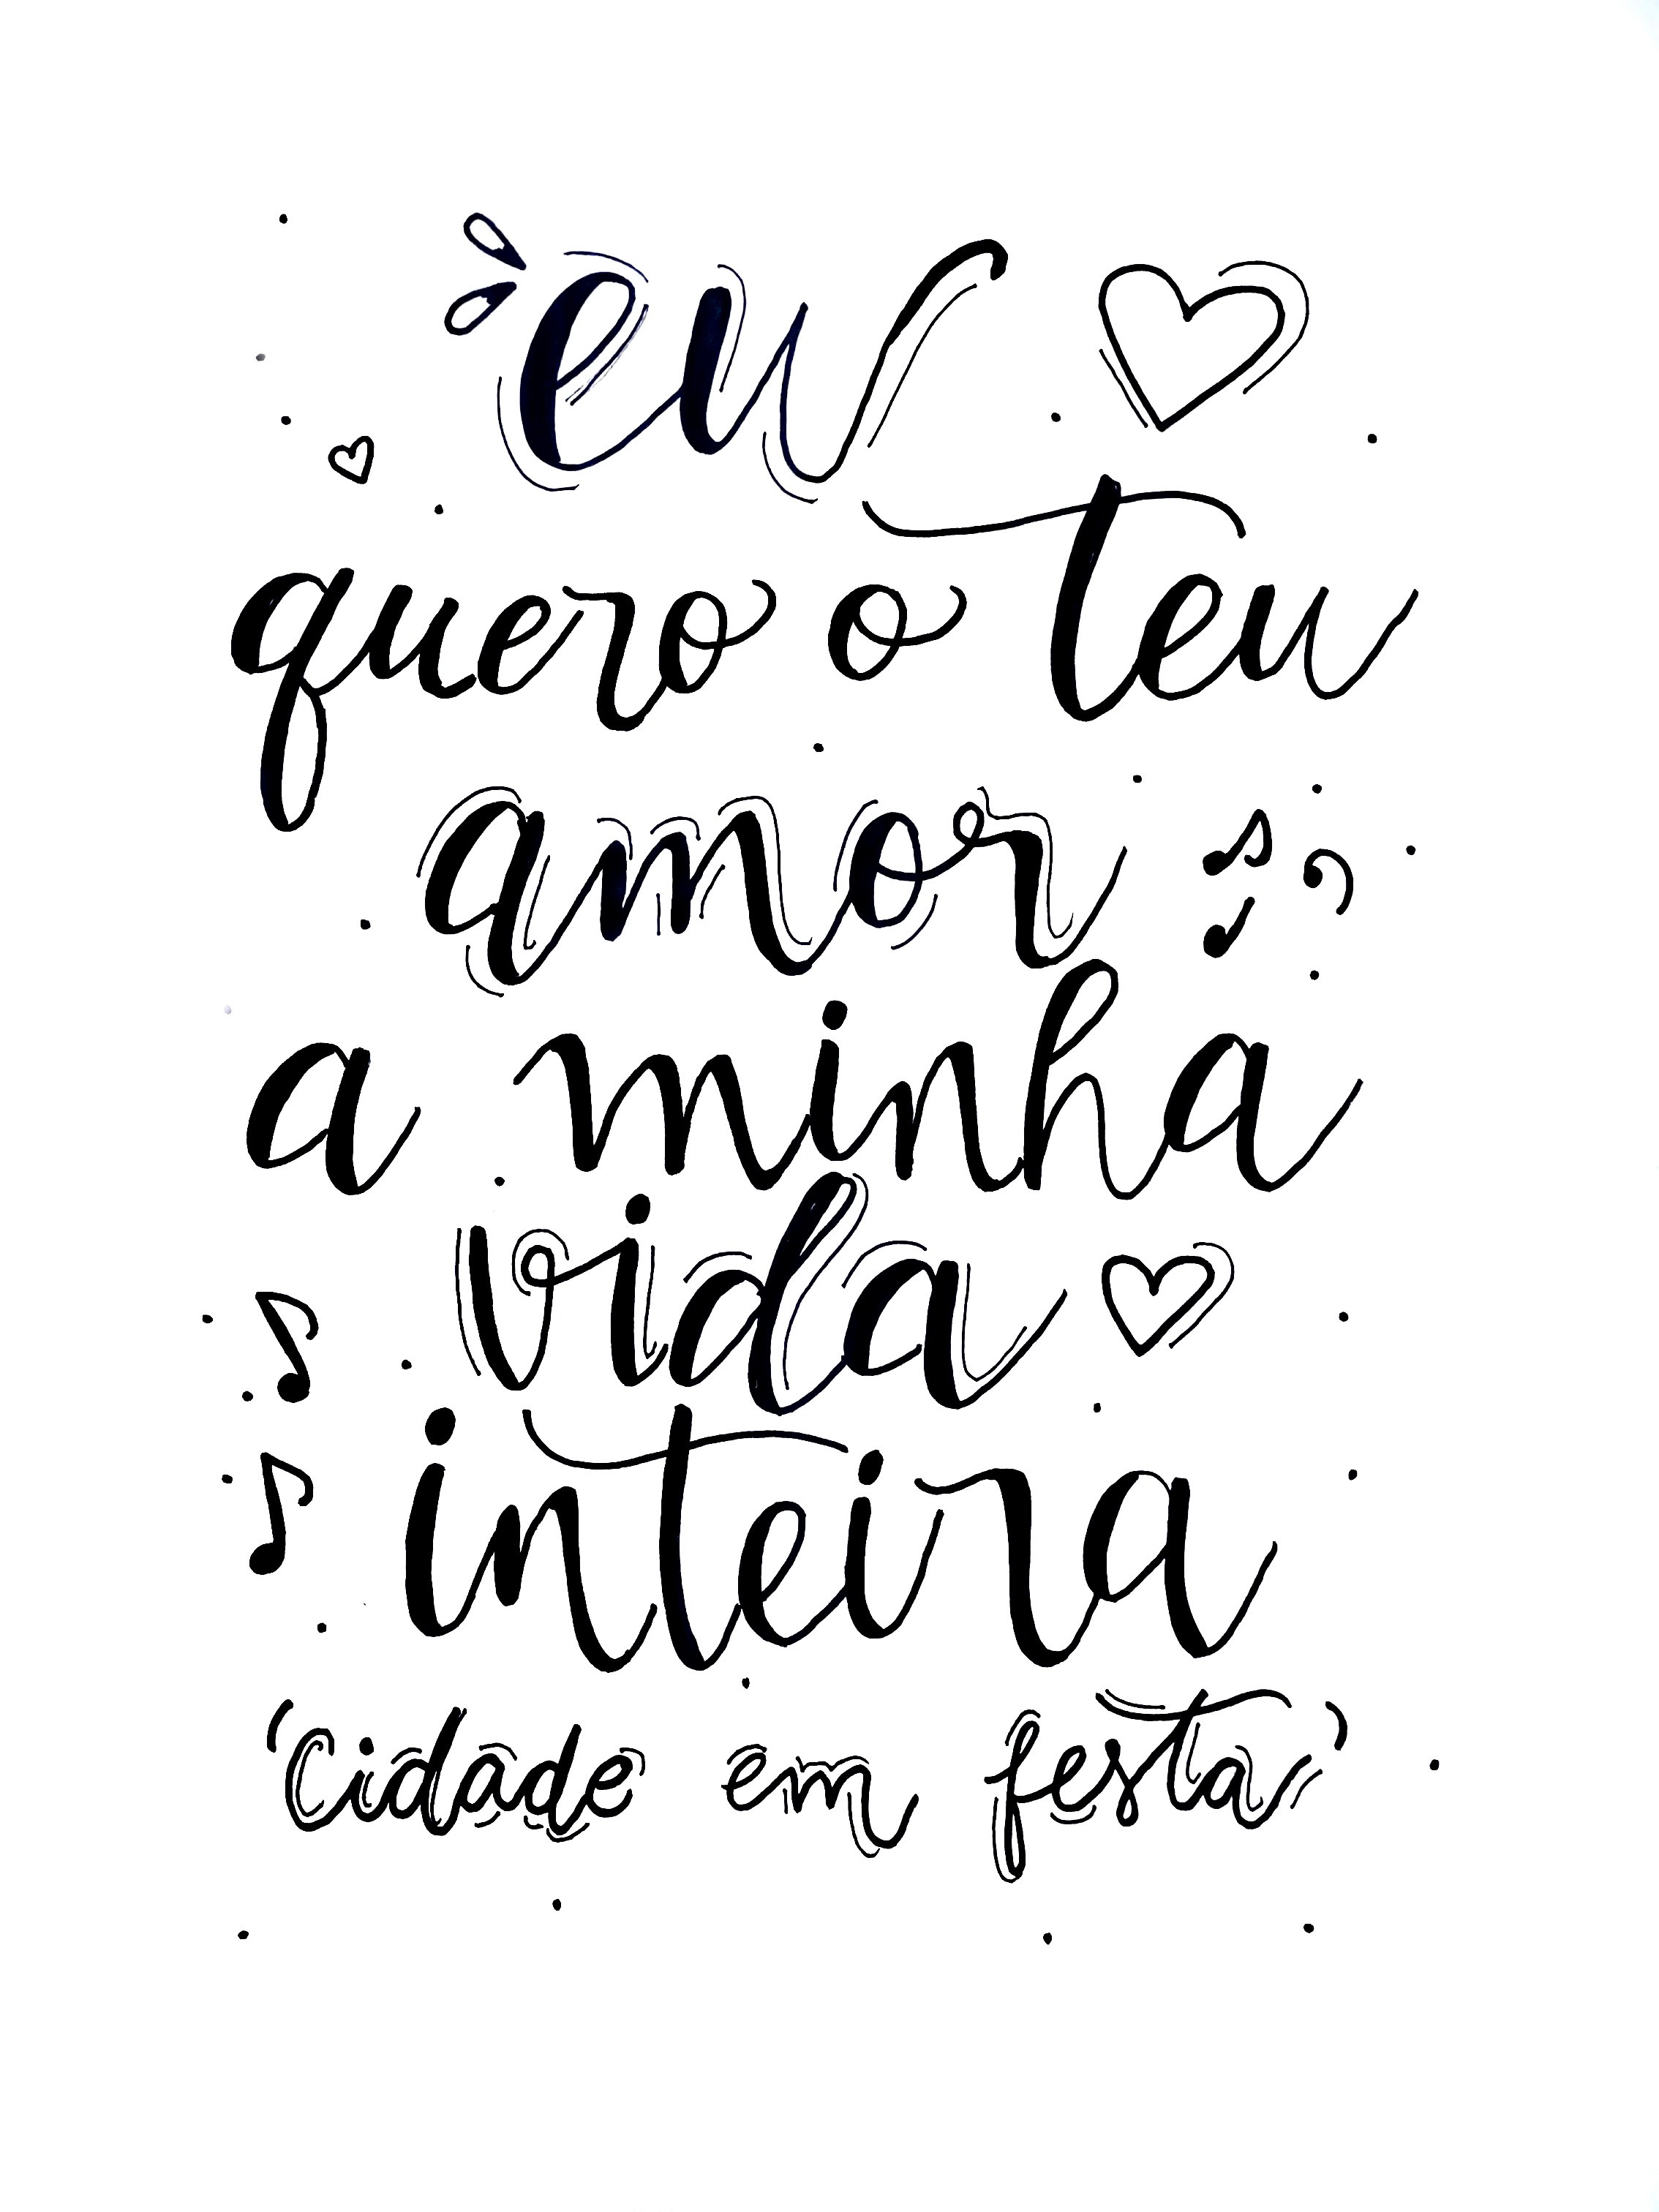 eu
quero o teu
amor
a minha
vida
inteira
'Cidade em festa'